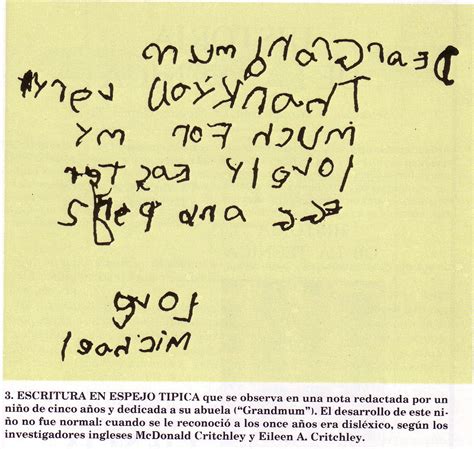 Dear Grandmum
Thank You very
much For my
lovly easter
egg and
love
michael
3. ESCRITURA EN ESPEJO TIPICA que se observa en una nota redactada por un
niño de cinco años y dedicada a su abuela (“Grandmum”). El desarrollo de este ni-
ño no fue normal: cuando se le reconoció a los once años era disléxico, según los
investigadores ingleses McDonald Critchley y Eileen A. Critchley.